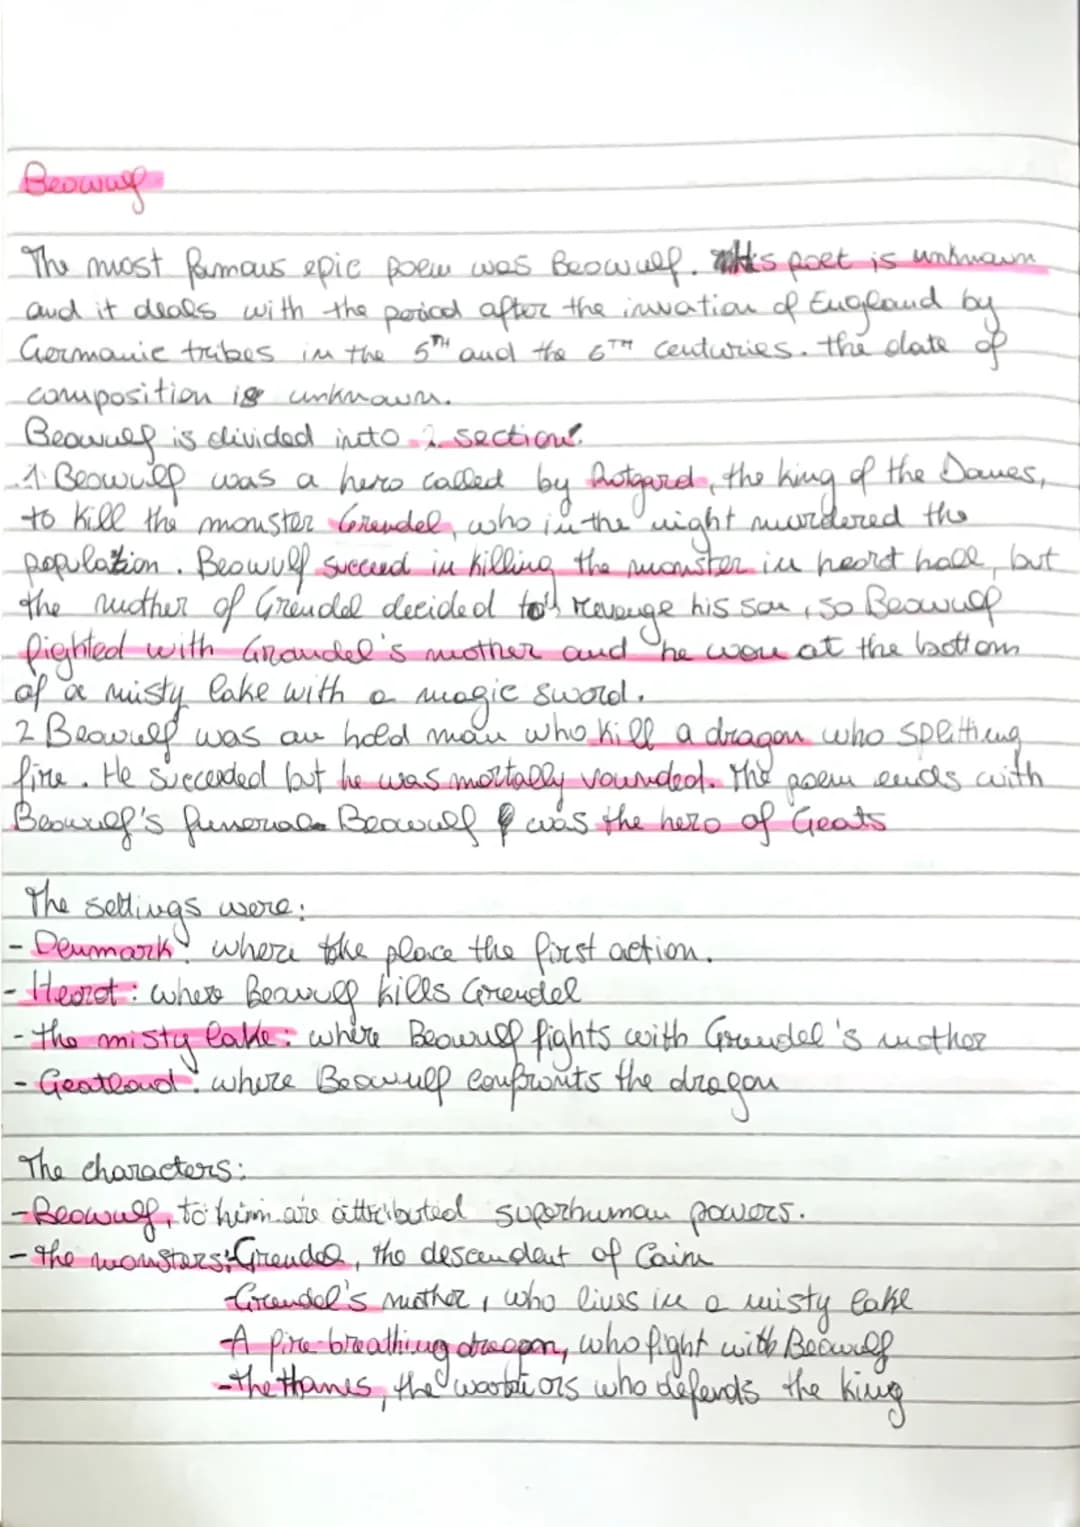 Beowulf
The most famous epic poem was Beowulf. Its poet is unknown
and it deals with the period after the invation of England by
Germanic tribes in the 5TH and the 6TH centuries. the date of
composition is unknown.
Beowulf is divided into 2 section:
1. Beowulf was a hero called by Rotgard, the king of the Danes,
to kill the monster Grendel, who in the night murdered the
population. Beowulf succeed in killing the monster in heort hall, but
the mother of Grendel decided to revenge his son, so Beowulf
fighted with Grandel's mother and he won at the bottom
of a misty lake with a magic sword.
2 Beowulf was an hold man who kill a dragon who splitting
fire. He succeeded but he was mortally vounded. The poem ends with
Beowulf's funeral. Beowulf was the hero of Geats
The settings were:
- Denmark: where take place the first action.
- Heorot: where Beowulf kills Grendel
- the misty lake: where Beowulf fights with Grendel's mother
- Geatland: where Beowulf confronts the dragon
The characters:
- Beowulf, to him are attributed superhuman powers.
- the monsters: - Grendel, the descendent of Cain
- Grendel's mother, who lives in a misty lake
- A fire-breathing dragon, who fight with Beowulf
- the thanes, the warriors who defends the king